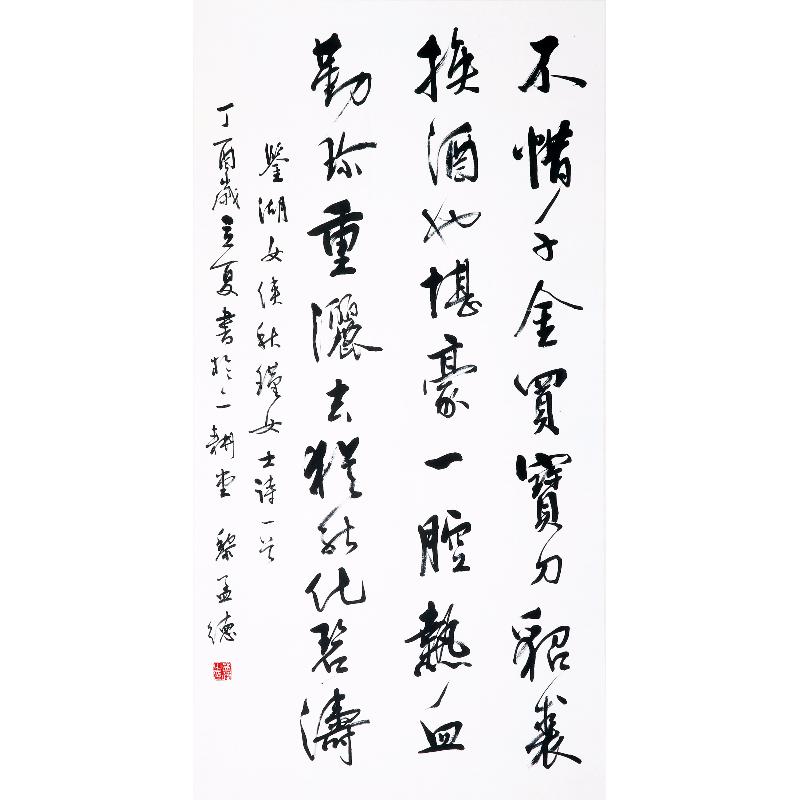 不惜千金買寶刀貂裘
換酒也堪豪一腔熱血
勤珍重灑去猶能化碧濤
鑒湖女俠秋瑾女士诗一首
丁酉歲立夏書於一耕堂 黎孟德